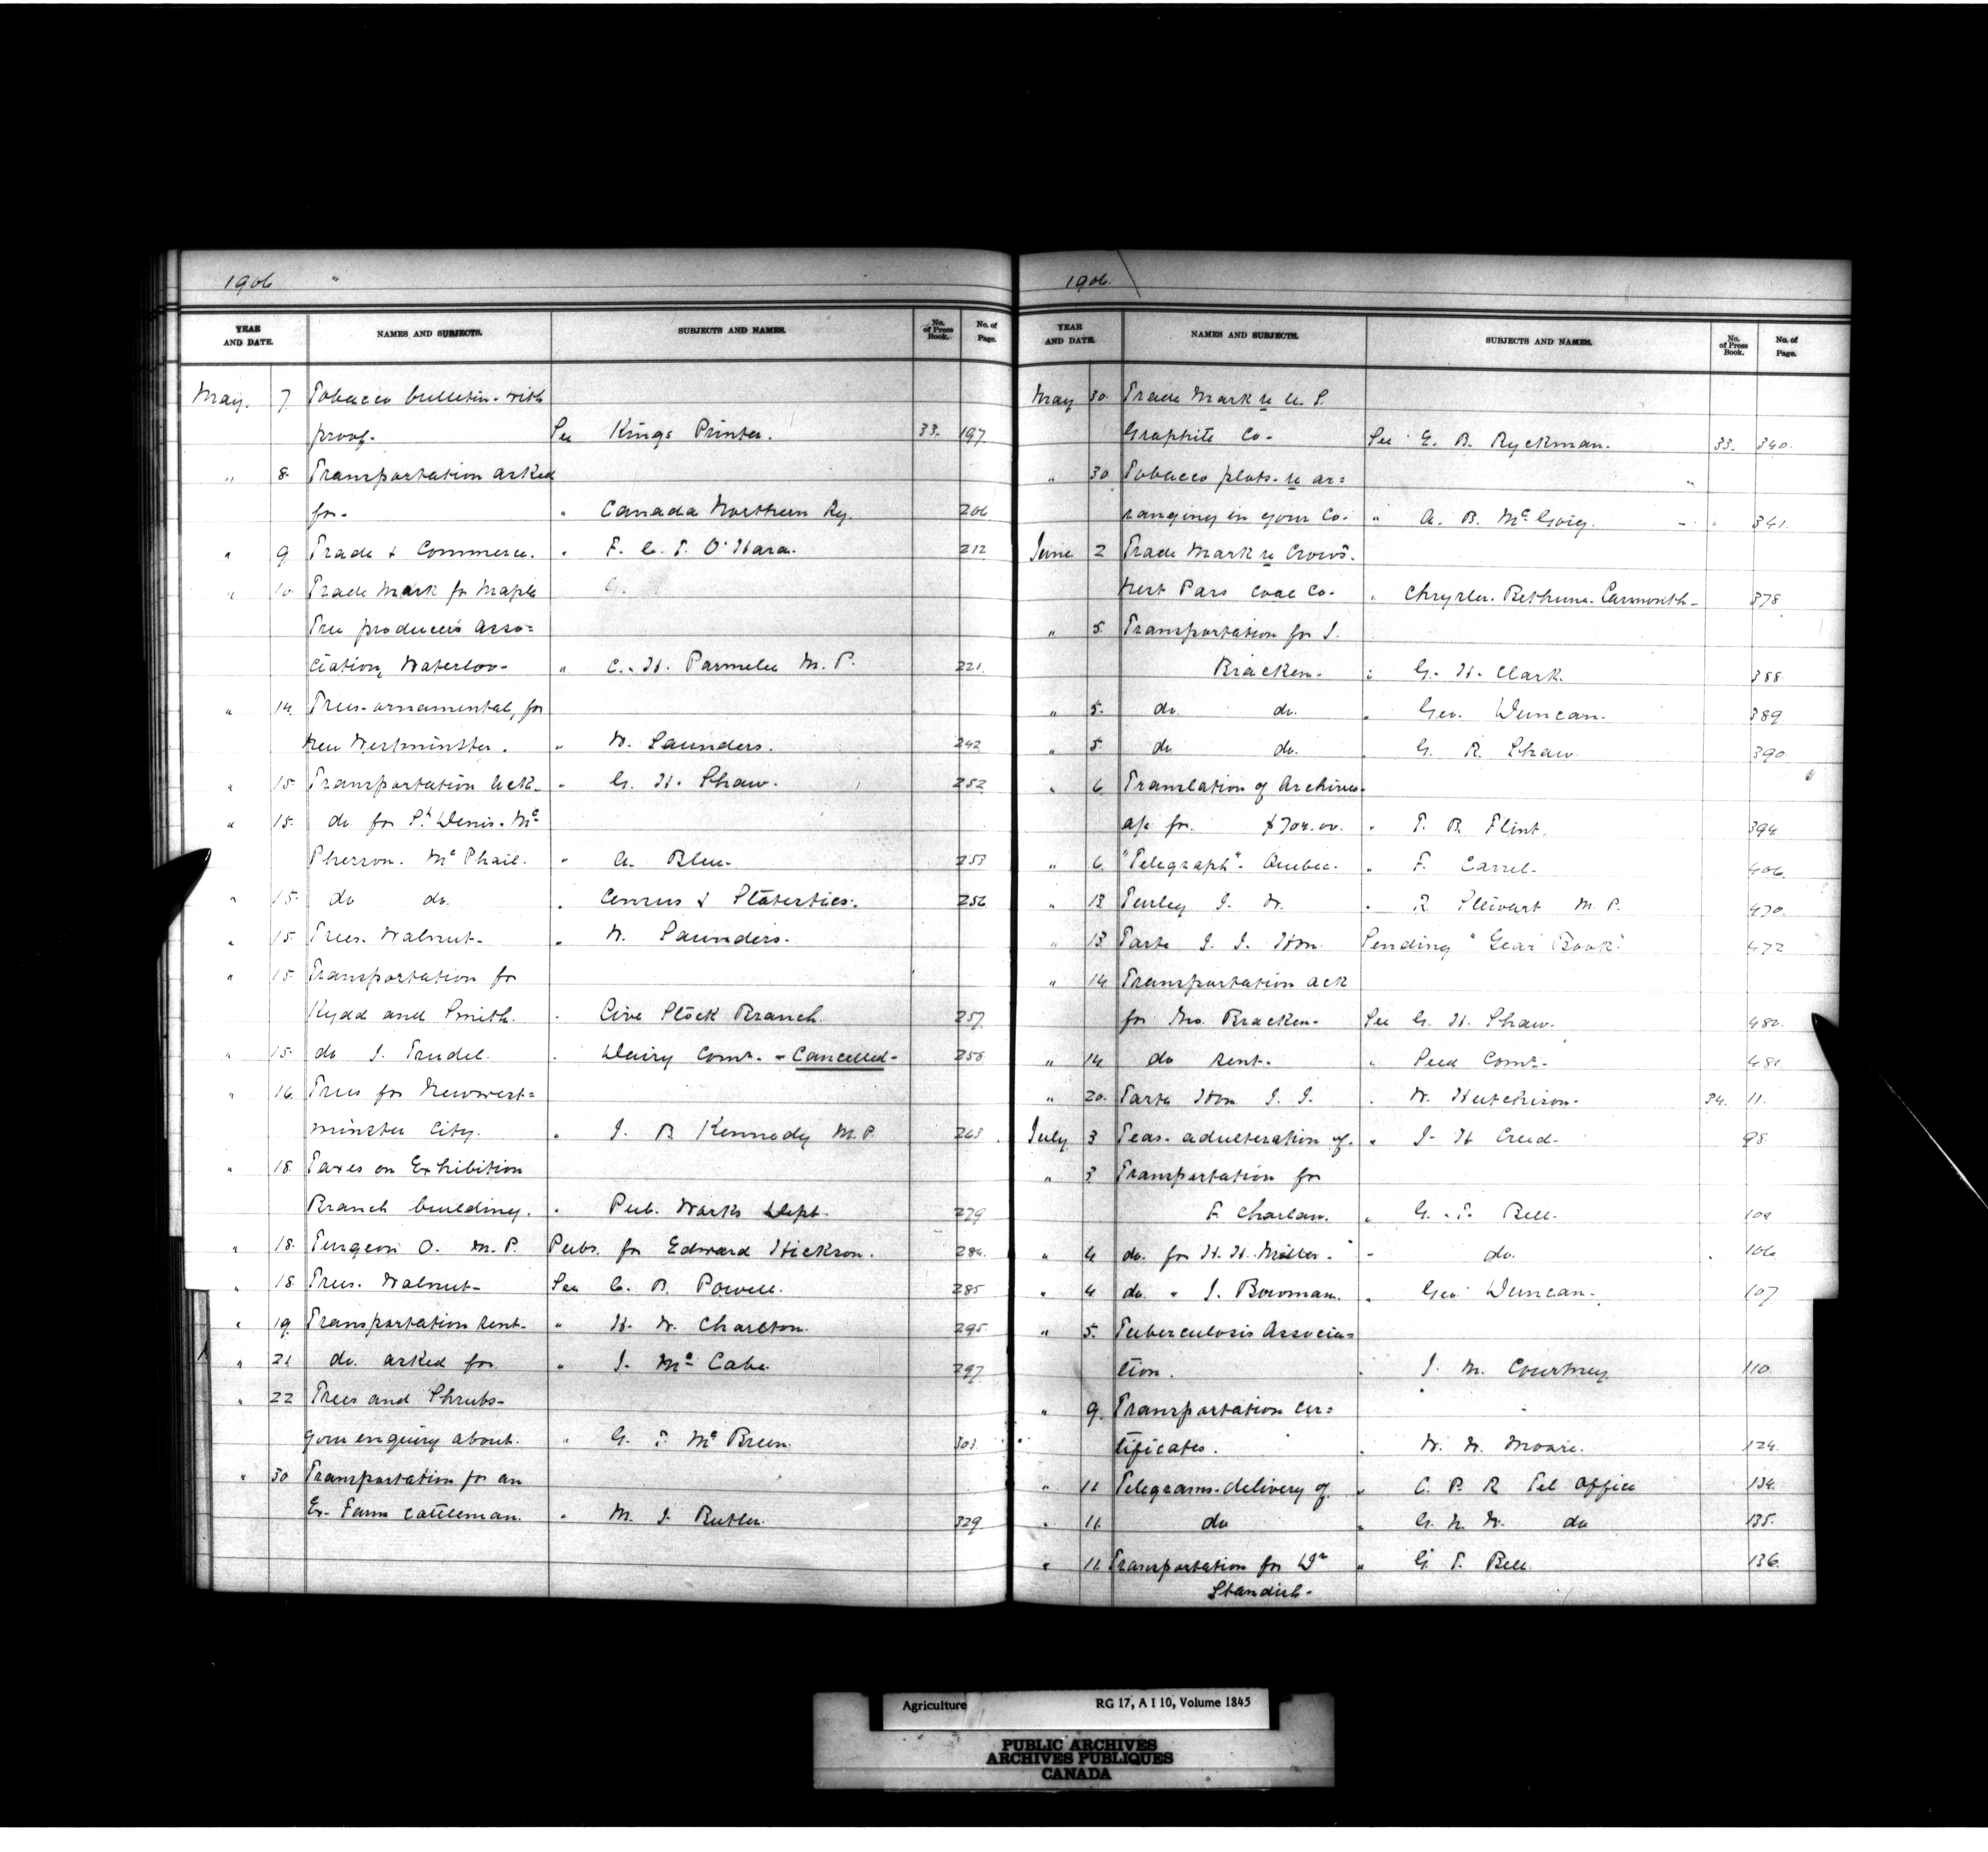 1906
YEAR AND DATE. NAMES AND SUBJECTS. SUBJECTS AND NAMES. No. of Press Book. No. of Page.
May. 7 Tobacco bulletin - with
proof. See Kings Printer. 33. 197
" 8. Transportation asked
for - " Canada Northern Ry. 206
" 9 Trade & Commerce. " F. C. T. O'Hara. 212
" 10 Trade Mark for Maple
Tree producers Asso=
ciation, Waterloo - " C. H. Parmelee M. P. 221.
" 14. Trees - ornamental, for
New Westminster. " W. Saunders. 242
" 15. Transportation Ack. " G. H. Shaw. 252
" 15. do for St Denis. Mc
Pherson. McPhail. " A. Blue. 253
" 15. do do. " Census & Statistics. 256
" 15. Trees. Walnut - " W. Saunders.
" 15. Transportation for
Kydd and Smith. " Live Stock Branch. 257
" 15. do J. Trudel. " Dairy Comr. - Cancelled - 258
" 16. Trees for Newwest=
minster City. " J. B. Kennedy M.P. 263
" 18. Taxes on Exhibition
Branch building. " Pub. Works Dept. 279
" 18. Turgeon O. M. P. Pubs. for Edward Hickson. 284.
" 18 Trees. Walnut - See C. B. Powell. 285
" 19. Transportation sent - " H. W. Charlton. 295.
" 21 do. asked for " J. McCabe. 297
" 22 Trees and Shrubs -
your enquiry about. " G. T. McBreen. 303.
" 30 Transportation for an
Ex. Farm cattleman. " M. J. Butler. 329
1906.
YEAR AND DATE. NAMES AND SUBJECTS. SUBJECTS AND NAMES. No. of Press Book. No. of Page.
May 30. Trade Mark re U. S.
Graphite Co - See E. B. Ryckman. 33. 340.
" 30 Tobacco plots - re ar=
ranging in your Co. " A. B. McCoig. 341.
June 2 Trade Mark re Crow's.
Nest Pass Coal Co - " Chrysler. Bethune. Larmonth - 378
" 5. Transportation for J.
Bracken. " G. H. Clark. 388
" 5. do. do. " Geo. Duncan. 389
" 5. do do. " G. R. Shaw 390
" 6 Translation of Archives -
a/c for. $704.00. " T. B. Flint. 394
" 6 "Telegraph" - Quebec. " F. Carrel. 406.
" 13 Turley J. W. " R Stewart M. P. 470.
" 13. Tarte J. I. Hon. Sending "Year Book". 472
" 14 Transportation ack
for Jno. Bracken - See G. H. Shaw. 480.
" 14 do sent. " Seed Comr. 481
" 20. Tarte Hon J. I. " W. Hutchison - 34. 11.
July 3 Teas - adulteration of. " J. H Creed - 98
" 3 Transportation for
F. Charlan. " G. T. Bell. 104
" 4 do. for H. H. Miller. " do. 106
" 4 do. " J. Bowman. " Geo Duncan. 107
" 5. Tuberculosis Associa=
tion. " J. M. Courtney 110.
" 9. Transportation cer=
tificates. " W. W. Moore. 124.
" 11 Telegrams - delivery of " C. P. R Tel Office 134.
" 11. do " G. N. W. do 135.
" 11. Transportation for Dr " G. T. Bell. 136.
Standish -
Agriculture RG 17, A I 10, Volume 1845
PUBLIC ARCHIVES
ARCHIVES PUBLIQUES
CANADA